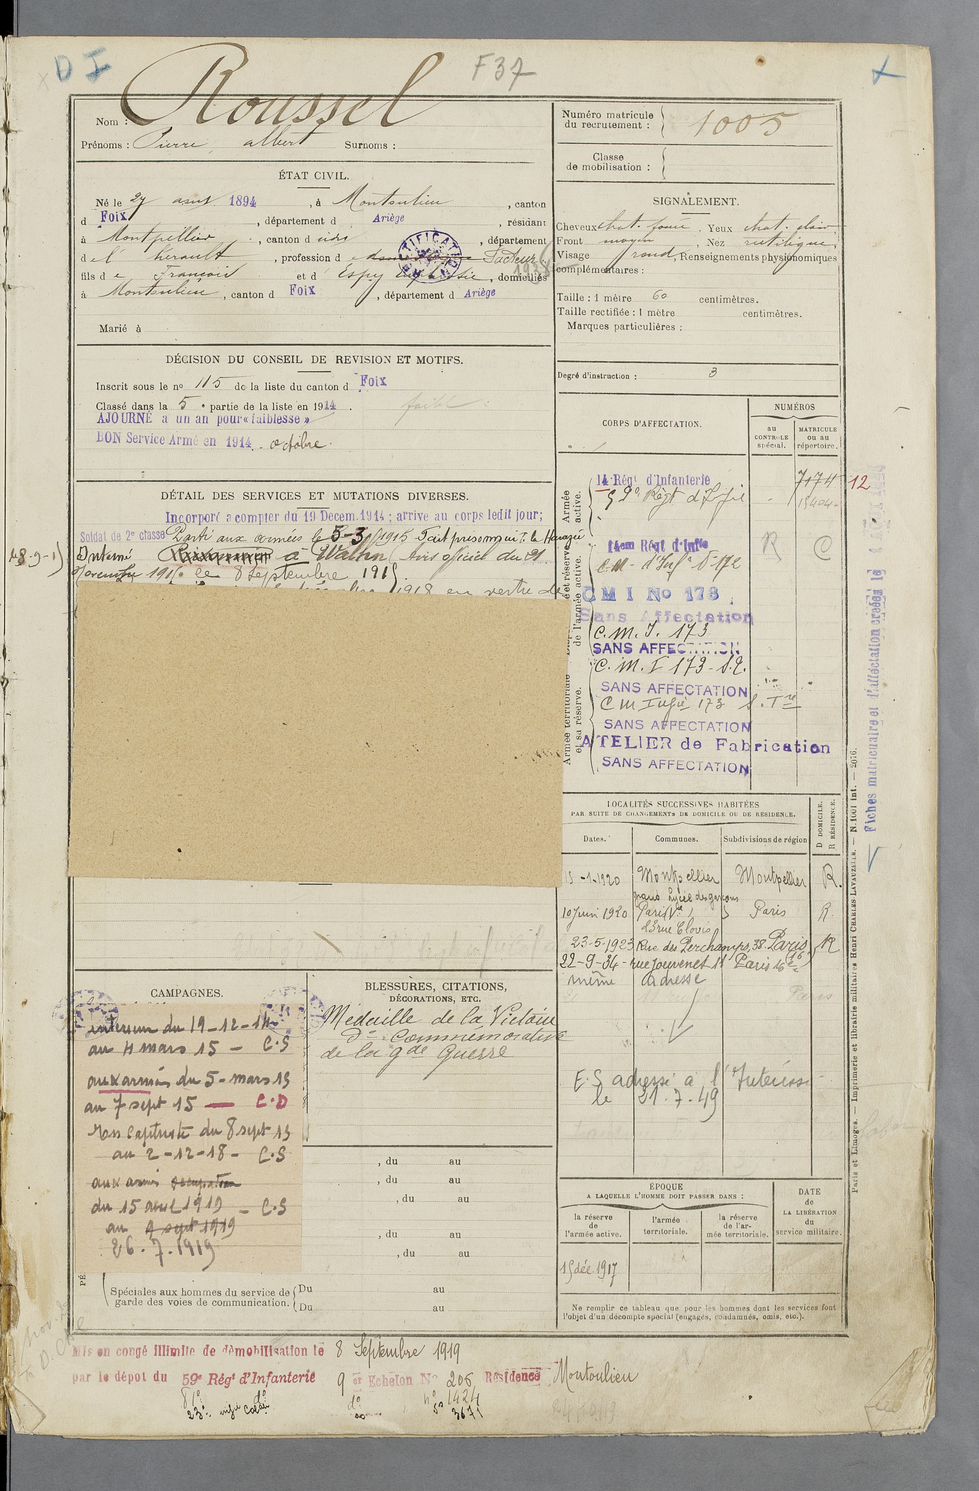 D I
F 37
Roussel
Nom :
Prénoms : Pierre, Albert Surnoms :
ÉTAT CIVIL.
Né le 27 août 1894, à Montoulieu, canton
d Foix, département d Ariège, résidant
à Montpellier, canton d dudit, département
de l'hérault, profession d Facteur
fils de François et d' Espy, domiciliés
à Montoulieu, canton d Foix, département d Ariège
Marié à
DÉCISION DU CONSEIL DE REVISION ET MOTIFS.
Inscrit sous le nº 115 de la liste du canton d Foix
Classé dans la 5e partie de la liste en 1914. faible
AJOURNÉ à un an pour « faiblesse »
BON Service Armé en 1914 octobre.
DÉTAIL DES SERVICES ET MUTATIONS DIVERSES.
Incorporé à compter du 19 Decem. 1914 ; arrivé au corps ledit jour;
Soldat de 2e classe Parti aux armées le 5-3-1915 Fait prisonnier
(8-9-15) Interné à Wahn (Avis officiel du 21
Novembre 1915) le 8 Septembre 1915.
1918 en vertu de
CAMPAGNES.
intérieur du 19-12-14
au 4 mars 15 - C.S
aux armées du 5-mars 15
au 7 sept 15 — C.D
en captivité du 8 sept 15
au 2-12-18 - C.S
aux armées occupation
du 15 avril 1919 - C.S
au 9 sept 1919
26.7.1919
BLESSURES, CITATIONS,
DÉCORATIONS, ETC.
Médaille de la Victoire
do Commémorative
de la gde Guerre
, du au
, du au
, du au
, du au
, du au
Spéciales aux hommes du service de
garde des voies de communication.
Du au
Du au
Mis en congé illimité de démobilisation le 8 Septembre 1919
par le dépôt du 59e Régt d'Infanterie 9er Echelon No 206 Résidence Montoulieu
no 1424
3671
Numéro matricule
du recrutement : 1005
Classe
de mobilisation :
SIGNALEMENT.
Cheveux chat. foncé. Yeux chat. clair
Front moyen, Nez rectiligne,
Visage rond, Renseignements physiognomiques
complémentaires :
Taille : 1 mètre 60 centimètres.
Taille rectifiée : 1 mètre centimètres.
Marques particulières :
Degré d'instruction : 3
CORPS D'AFFECTATION.
NUMÉROS
au CONTROLE spécial.
MATRICULE ou au répertoire.
Armée active.
14 Régt d'Infanterie 7174 12
59e Régt d'Infie
14em Régt d'Infie R C
C M I No 178
Sans Affectation
C.M.I. 173
SANS AFFECTATION
C.M.I 173 S.I.
SANS AFFECTATION
C M Infie 173
SANS AFFECTATION
ATELIER de Fabrication
SANS AFFECTATION
Armée territoriale et sa réserve.
LOCALITÉS SUCCESSIVES HABITÉES
PAR SUITE DE CHANGEMENTS DE DOMICILE OU DE RÉSIDENCE.
Dates. Communes. Subdivisions de région D DOMICILE. R RÉSIDENCE.
-1-1920 Montpellier Montpellier R.
grand Lycée de garçons
10 Juin 1920 Paris Paris R.
23 rue Clovis
23-5-1923 Rue des Perchamps, 38. Paris R
22-9-34 - rue Jouvenet 11 Paris 16e
même adresse
E.S adressé à l'Intéressé
le 21.7.49
ÉPOQUE
A LAQUELLE L'HOMME DOIT PASSER DANS :
la réserve de l'armée active.
l'armée territoriale.
la réserve de l'armée territoriale.
DATE de LA LIBÉRATION du service militaire.
15 déc 1917
Ne remplir ce tableau que pour les hommes dont les services font
l'objet d'un décompte spécial (engagés, condamnés, omis, etc.).
Paris et Limoges. — Imprimerie et librairie militaires Henri CHARLES-LAVAUZELLE. — N. 1001 int. — 2076.
Fiches matriculaire et d'affectation créées le